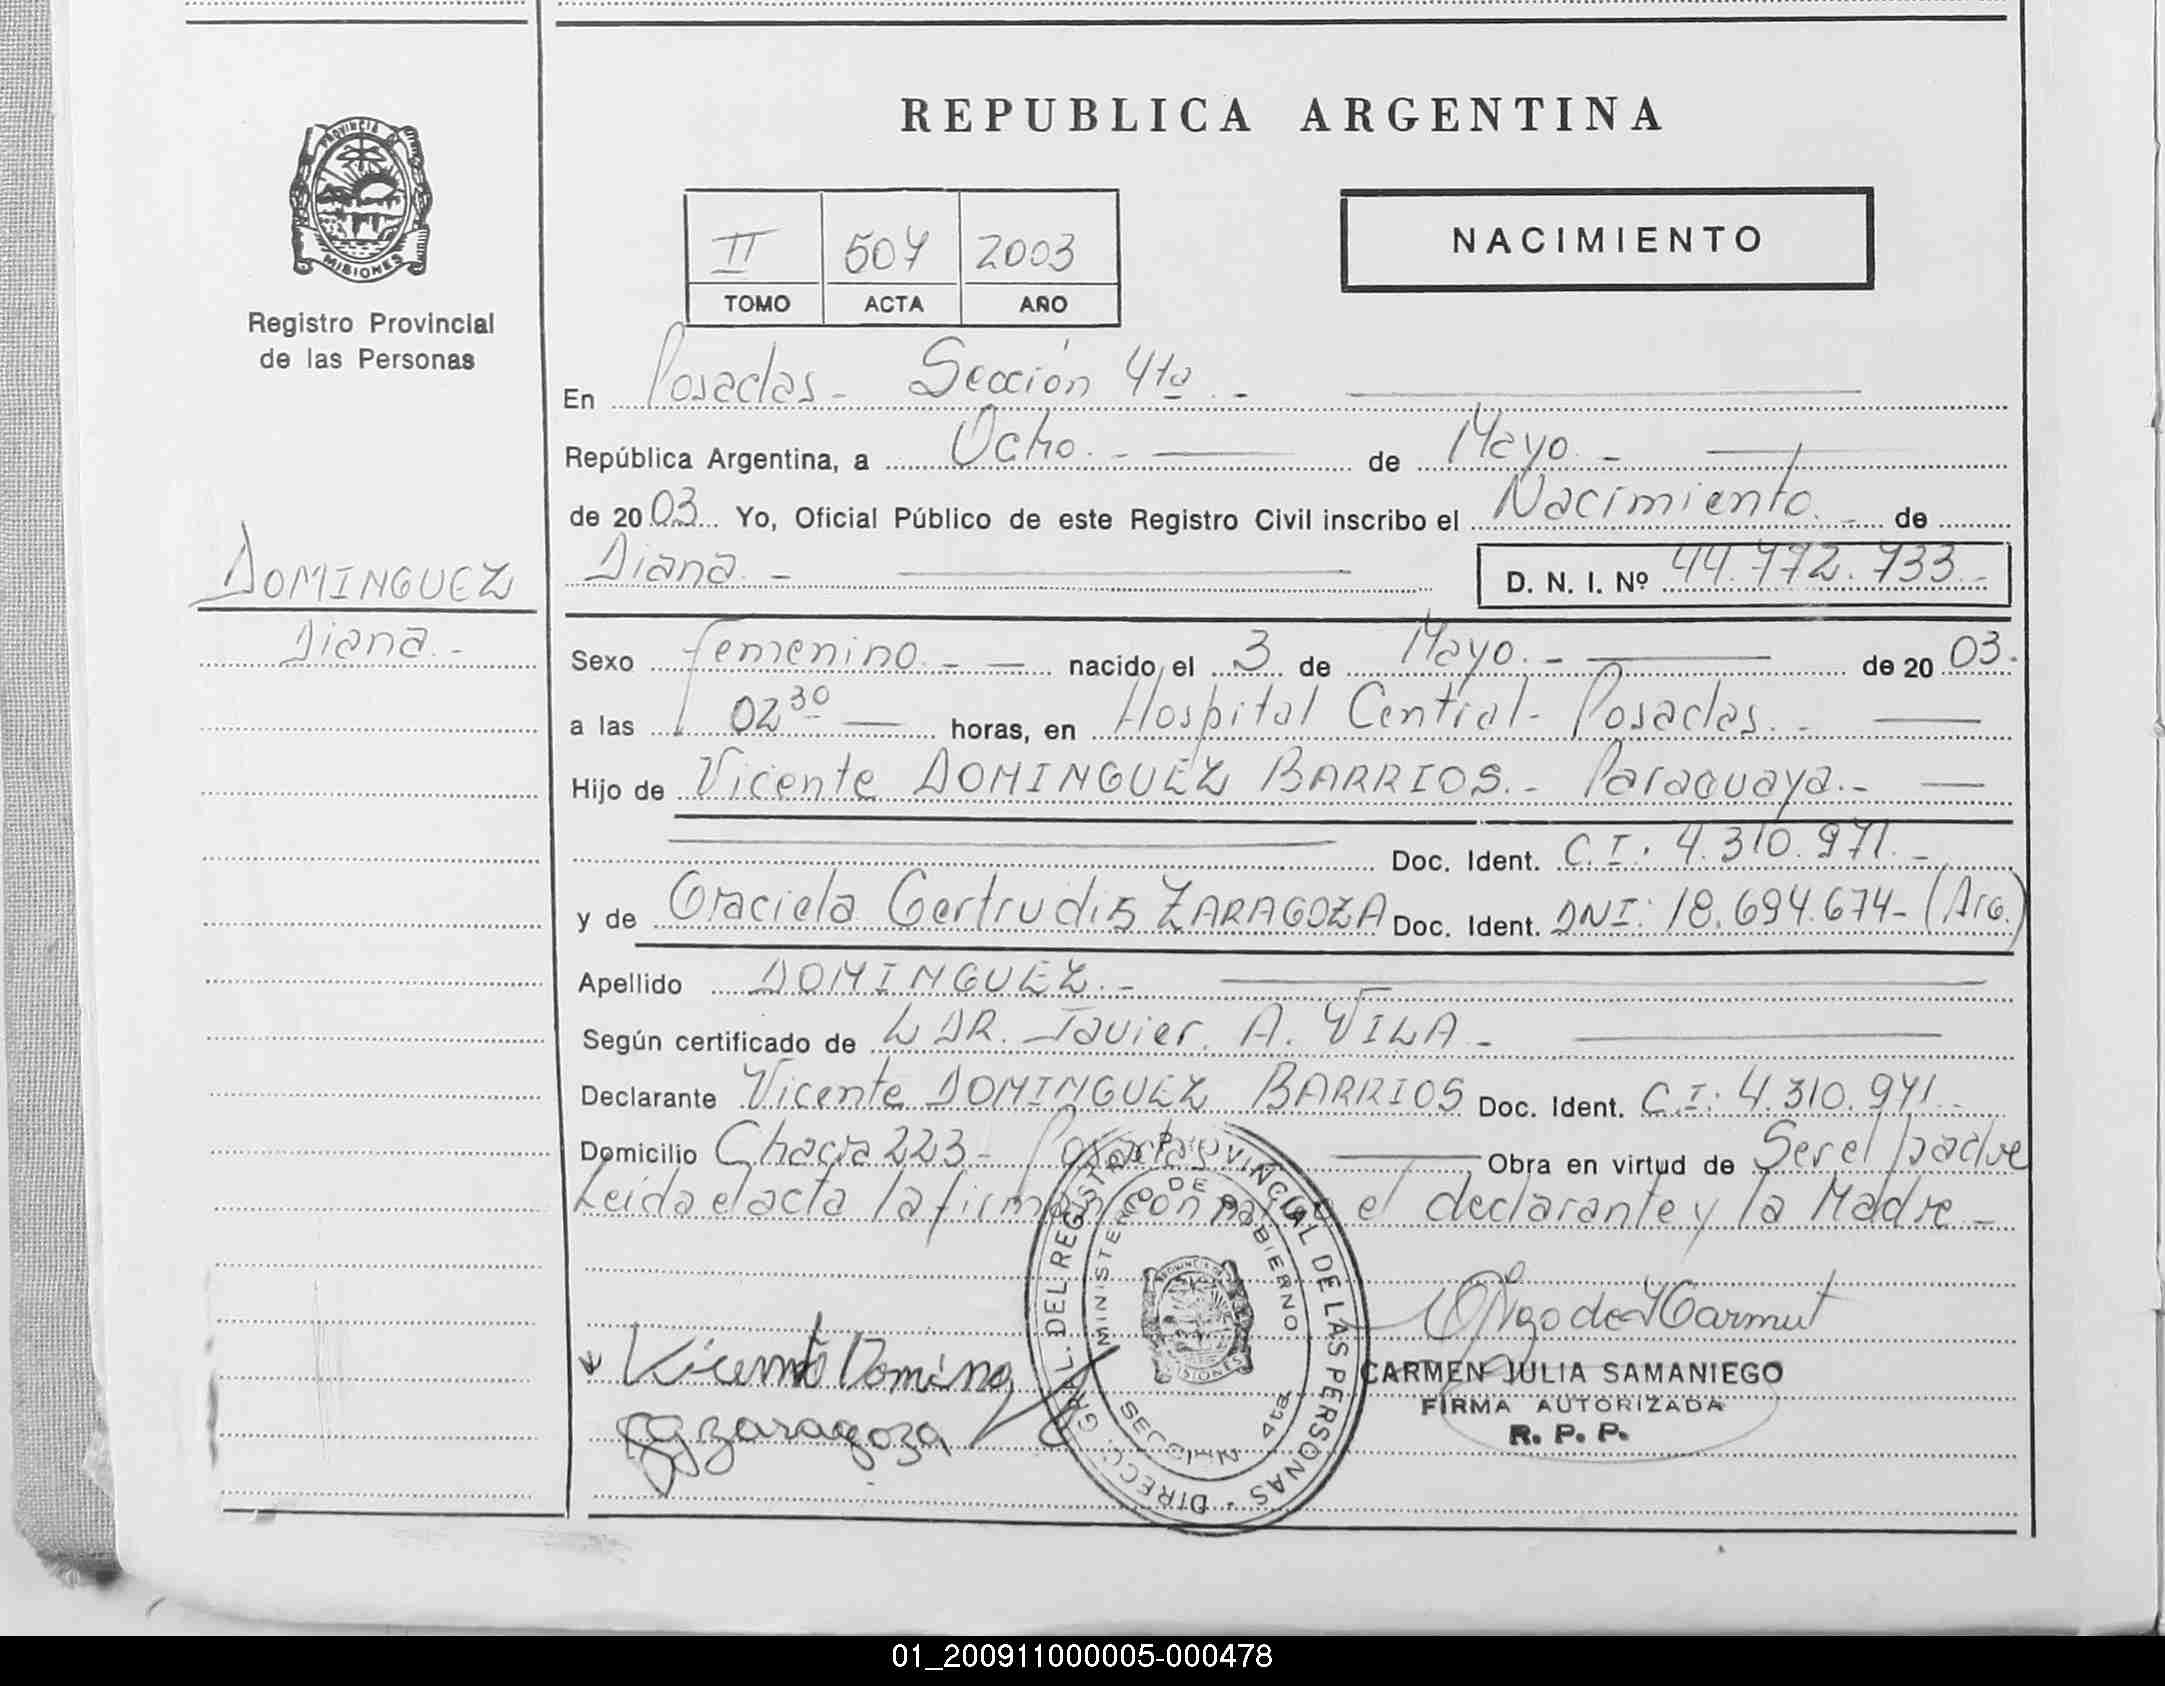 REPUBLICA ARGENTINA
PROVINCIA DE
MISIONES
Registro Provincial
de las Personas
II 507 2003
TOMO ACTA AÑO
NACIMIENTO
En Posadas - Sección 4ta. -
República Argentina, a Ocho. - de Mayo. -
de 2003. Yo, Oficial Público de este Registro Civil inscribo el Nacimiento. - de
Diana. - D. N. I. Nº 44.772.733.-
DOMINGUEZ
Diana. -
Sexo femenino. - nacido, el 3 de Mayo. - de 2003.
a las 02 30 horas, en Hospital Central - Posadas. -
Hijo de Vicente DOMINGUEZ BARRIOS. - Paraguaya. -
Doc. Ident. C.I.: 4.310.971. -
y de Graciela Gertrudis ZARAGOZA Doc. Ident. DNI: 18.694.674- (Arg.)
Apellido DOMINGUEZ. -
Según certificado de DR. Javier. A. VILA -
Declarante Vicente DOMINGUEZ BARRIOS Doc. Ident. C.I: 4.310.971. -
Domicilio 223 - Posadas Obra en virtud de Ser el padre
Leida el acta la firman con migo el declarante y la Madre -
DIRECC. GRAL. DEL REGISTRO PROVINCIAL DE LAS PERSONAS
MINISTERIO DE GOBIERNO
SECCION 4ta
Vicente Doming
ggzaragoza
CARMEN JULIA SAMANIEGO
FIRMA AUTORIZADA
R. P. P.
01_200911000005-000478